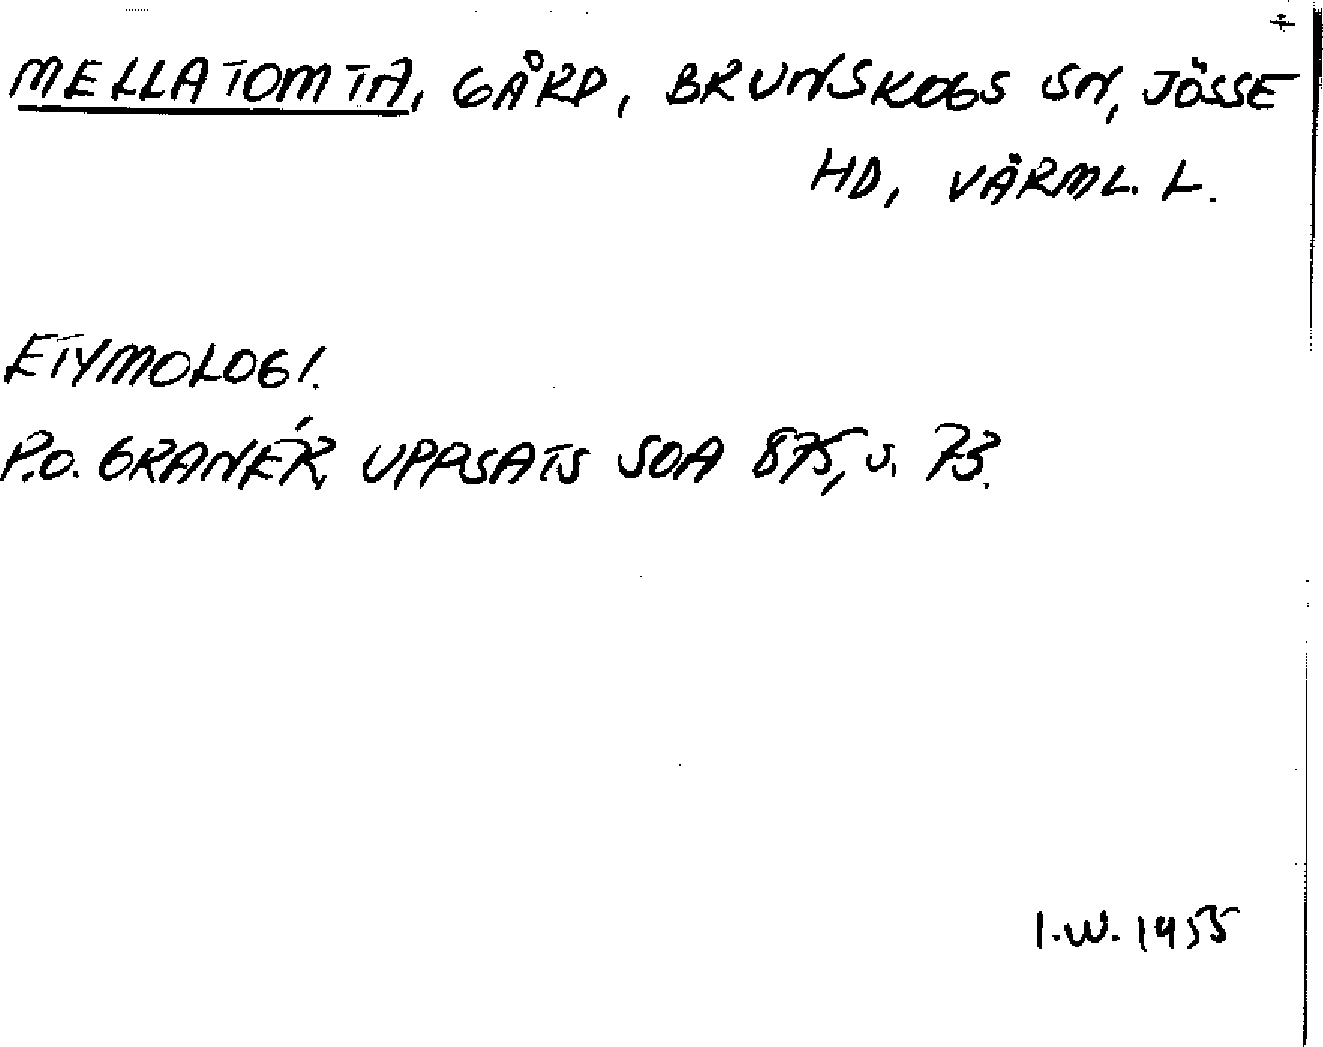 MELLATOMTA, GÅRD, BRUNSKOGS SN, JÖSSE
HD, VÄRML. L.
ETYMOLOGI.
P.O. GRANÉR, UPPSATS SOA 875, S. 73.
I.W. 1955